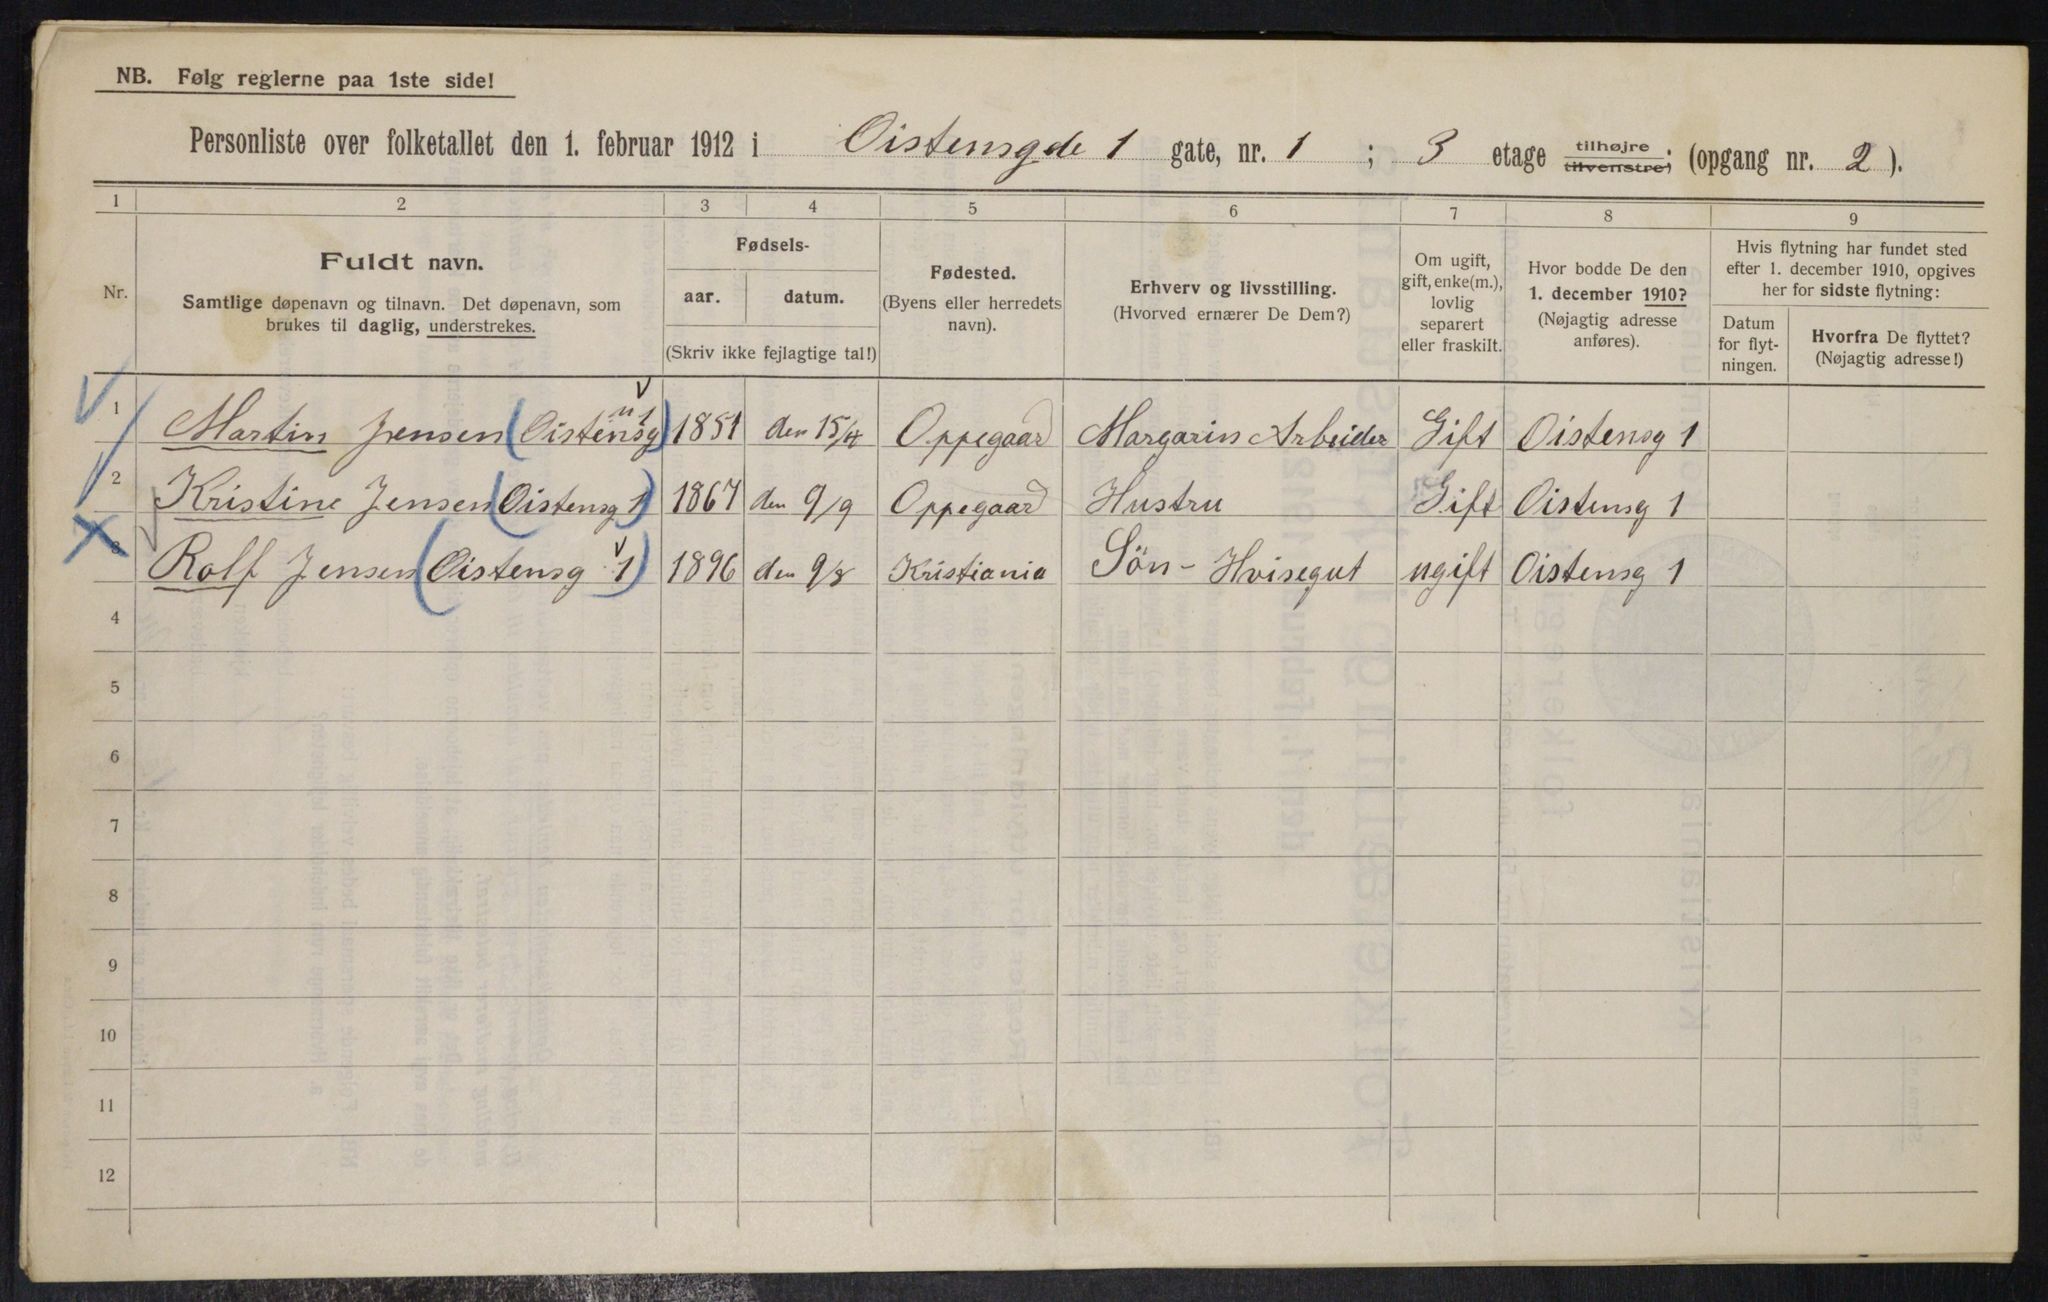 NB. Følg reglerne paa 1ste side!
Personliste over folketallet den 1. februar 1912 i Oistensgde 1 gate, nr. 1 ; 3 etage tilhøjre tilvenstre; (opgang nr. 2).
1 2 3 4 5 6 7 8 9
Nr.
Fuldt navn.
Samtlige døpenavn og tilnavn. Det døpenavn, som
brukes til daglig, understrekes.
Fødsels-
aar. datum.
(Skriv ikke fejlagtige tal!)
Fødested.
(Byens eller herredets
navn).
Erhverv og livsstilling.
(Hvorved ernærer De Dem?)
Om ugift,
gift, enke(m.),
lovlig
separert
eller fraskilt.
Hvor bodde De den
1. december 1910?
(Nøjagtig adresse
anføres).
Hvis flytning har fundet sted
efter 1. december 1910, opgives
her for sidste flytning:
Datum
for flyt-
ningen.
Hvorfra De flyttet?
(Nøjagtig adresse!)
1 Martin Jensen (Oistensg 1) 1851 den 15/4 Oppegaard Margarin Arbeider Gift Oistensg 1
2 Kristine Jensen (Oistensg 1) 1867 den 9/9 Oppegaard Hustru Gift Oistensg 1
3 Rolf Jensen (Oistensg 1) 1896 den 9/8 Kristiania Sön - Hvisegut ugift Oistensg 1
4
5
6
7
8
9
10
11
12